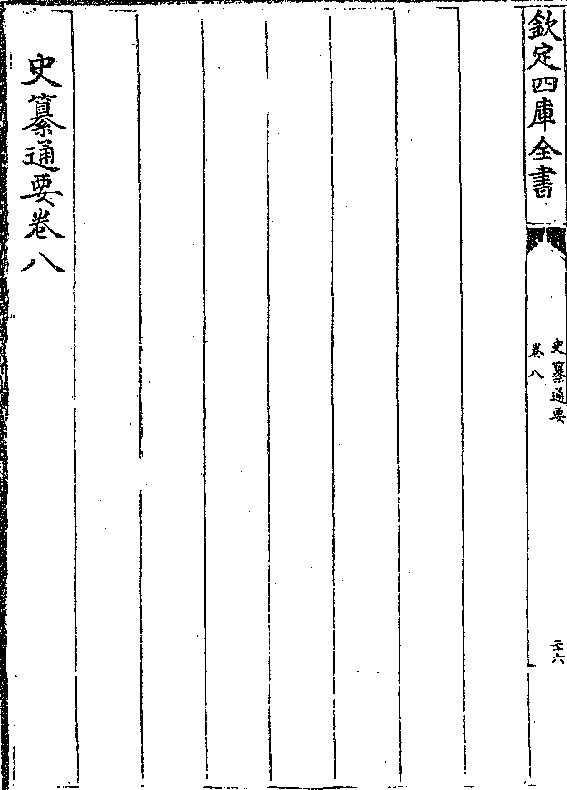 欽定四庫全書
史纂通要
卷八
二六
史纂通要卷八